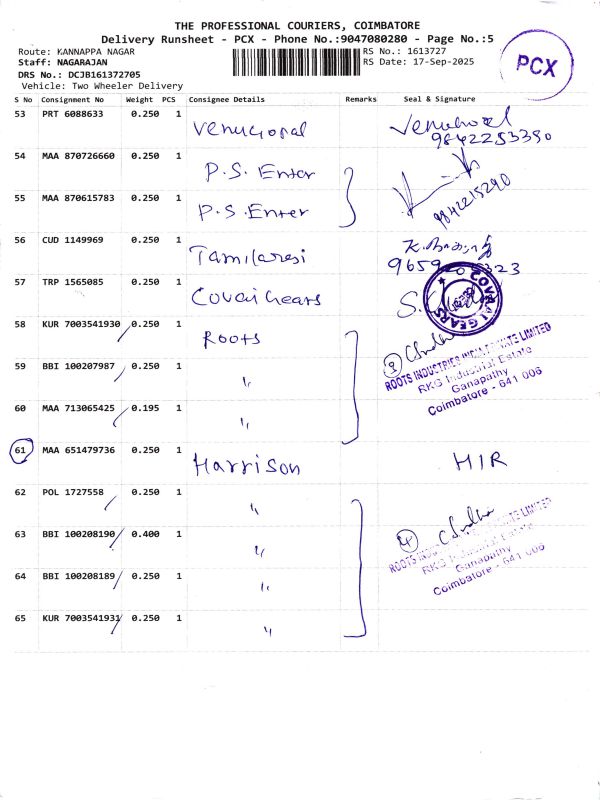 THE PROFESSIONAL COURIERS, COIMBATORE
Delivery Runsheet - PCX - Phone No.:9047080280 - Page No.:5
Route: KANNAPPA NAGAR
RS No.: 1613727
Staff: NAGARAJAN
RS Date: 17-Sep-2025
DRS No.: DCJB161372705
Vehicle: Two Wheeler Delivery
PCX
S No Consignment No Weight PCS Consignee Details Remarks Seal & Signature
53 PRT 6088633 0.250 1 Venugopal
9842253350
54 MAA 870726660 0.250 1 P.S. Enter
55 MAA 870615783 0.250 1 P.S. Enter
9842215290
56 CUD 1149969 0.250 1 Tamilarasi
57 TRP 1565085 0.250 1 Covai Gears
COVAI GEARS
58 KUR 7003541930 0.250 1 Roots
59 BBI 100207987 0.250 1 "
③
ROOTS INDUSTRIES INDIA PRIVATE LIMITED
RKG Industrial Estate
Ganapathy
Coimbatore - 641 006
60 MAA 713065425 0.195 1 "
61 MAA 651479736 0.250 1 Harrison HIR
62 POL 1727558 0.250 1 "
63 BBI 100208190 0.400 1 "
④ C. Sudha
ROOTS INDUSTRIES INDIA PRIVATE LIMITED
RKG Industrial Estate
Ganapathy
Coimbatore - 641 006
64 BBI 100208189 0.250 1 "
65 KUR 7003541931 0.250 1 "